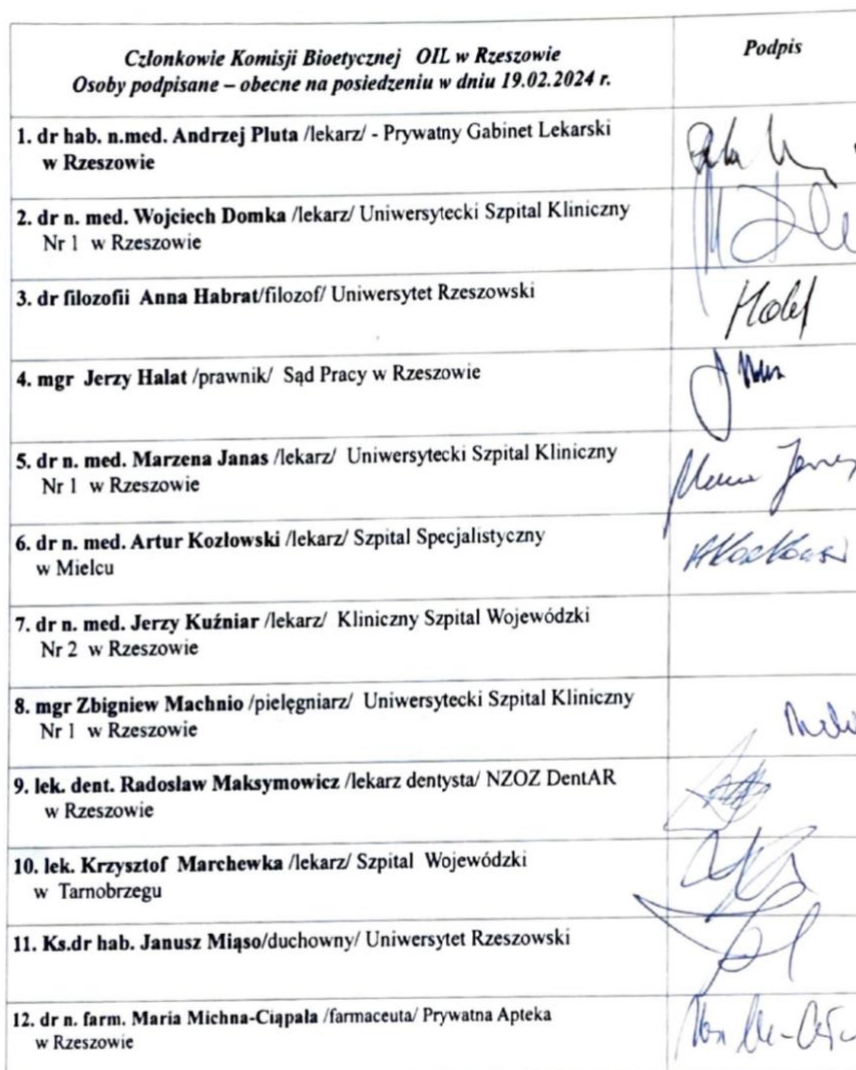 Członkowie Komisji Bioetycznej OIL w Rzeszowie
Osoby podpisane – obecne na posiedzeniu w dniu 19.02.2024 r.
Podpis
1. dr hab. n.med. Andrzej Pluta /lekarz/ - Prywatny Gabinet Lekarski
w Rzeszowie
2. dr n. med. Wojciech Domka /lekarz/ Uniwersytecki Szpital Kliniczny
Nr 1 w Rzeszowie
3. dr filozofii Anna Habrat/filozof/ Uniwersytet Rzeszowski
4. mgr Jerzy Halat /prawnik/ Sąd Pracy w Rzeszowie
5. dr n. med. Marzena Janas /lekarz/ Uniwersytecki Szpital Kliniczny
Nr 1 w Rzeszowie
6. dr n. med. Artur Kozłowski /lekarz/ Szpital Specjalistyczny
w Mielcu
7. dr n. med. Jerzy Kuźniar /lekarz/ Kliniczny Szpital Wojewódzki
Nr 2 w Rzeszowie
8. mgr Zbigniew Machnio /pielęgniarz/ Uniwersytecki Szpital Kliniczny
Nr 1 w Rzeszowie
9. lek. dent. Radosław Maksymowicz /lekarz dentysta/ NZOZ DentAR
w Rzeszowie
10. lek. Krzysztof Marchewka /lekarz/ Szpital Wojewódzki
w Tarnobrzegu
11. Ks.dr hab. Janusz Miąso/duchowny/ Uniwersytet Rzeszowski
12. dr n. farm. Maria Michna-Ciąpała /farmaceuta/ Prywatna Apteka
w Rzeszowie